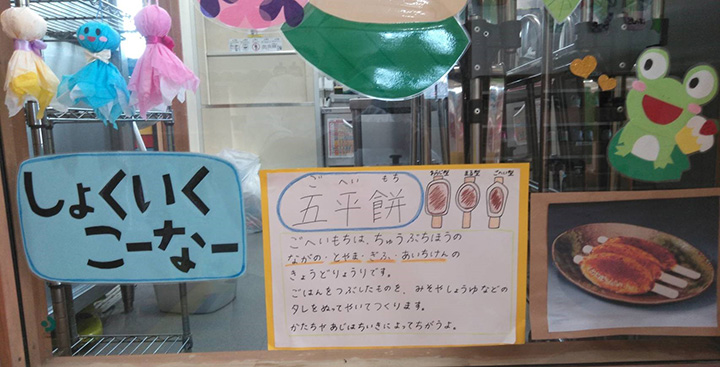 しょくいく
こーなー
ごへいもち
五平餅
ごへいもちは、ちゅうぶちほうの
ながの・とやま・ぎふ・あいちけんの
きょうどりょうりです。
ごはんをつぶしたものを、みそやしょうゆなどの
タレをぬってやいてつくります。
かたちやあじはちいきによってちがうよ。